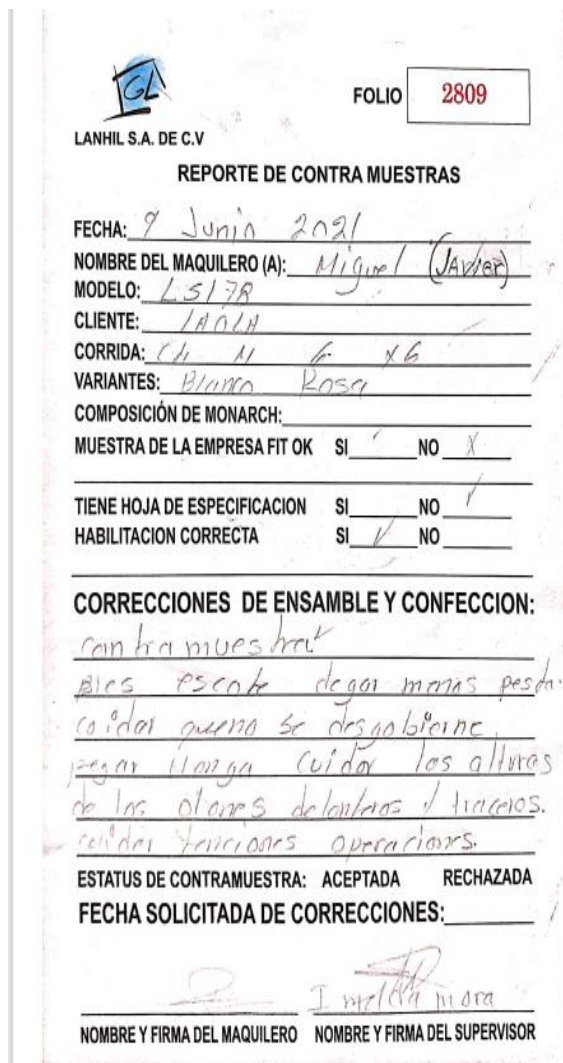 GL
LANHIL S.A. DE C.V
FOLIO 2809
REPORTE DE CONTRA MUESTRAS
FECHA: 9 Junio 2021
NOMBRE DEL MAQUILERO (A): Miguel (JAVIER)
MODELO: LS17R
CLIENTE:
CORRIDA: Ch M G XG
VARIANTES: Blanco Rosa
COMPOSICIÓN DE MONARCH:
MUESTRA DE LA EMPRESA FIT OK SI NO X
TIENE HOJA DE ESPECIFICACION SI NO ✓
HABILITACION CORRECTA SI ✓ NO
CORRECCIONES DE ENSAMBLE Y CONFECCION:
contra muestra
bies escote degar menos
coidar queno se desgobierne
pegar manga cuidar las alturas
de los olanes delanteros y traceros.
coidar tenciones operaciones.
ESTATUS DE CONTRAMUESTRA: ACEPTADA RECHAZADA
FECHA SOLICITADA DE CORRECCIONES:
Imelda mora
NOMBRE Y FIRMA DEL MAQUILERO NOMBRE Y FIRMA DEL SUPERVISOR